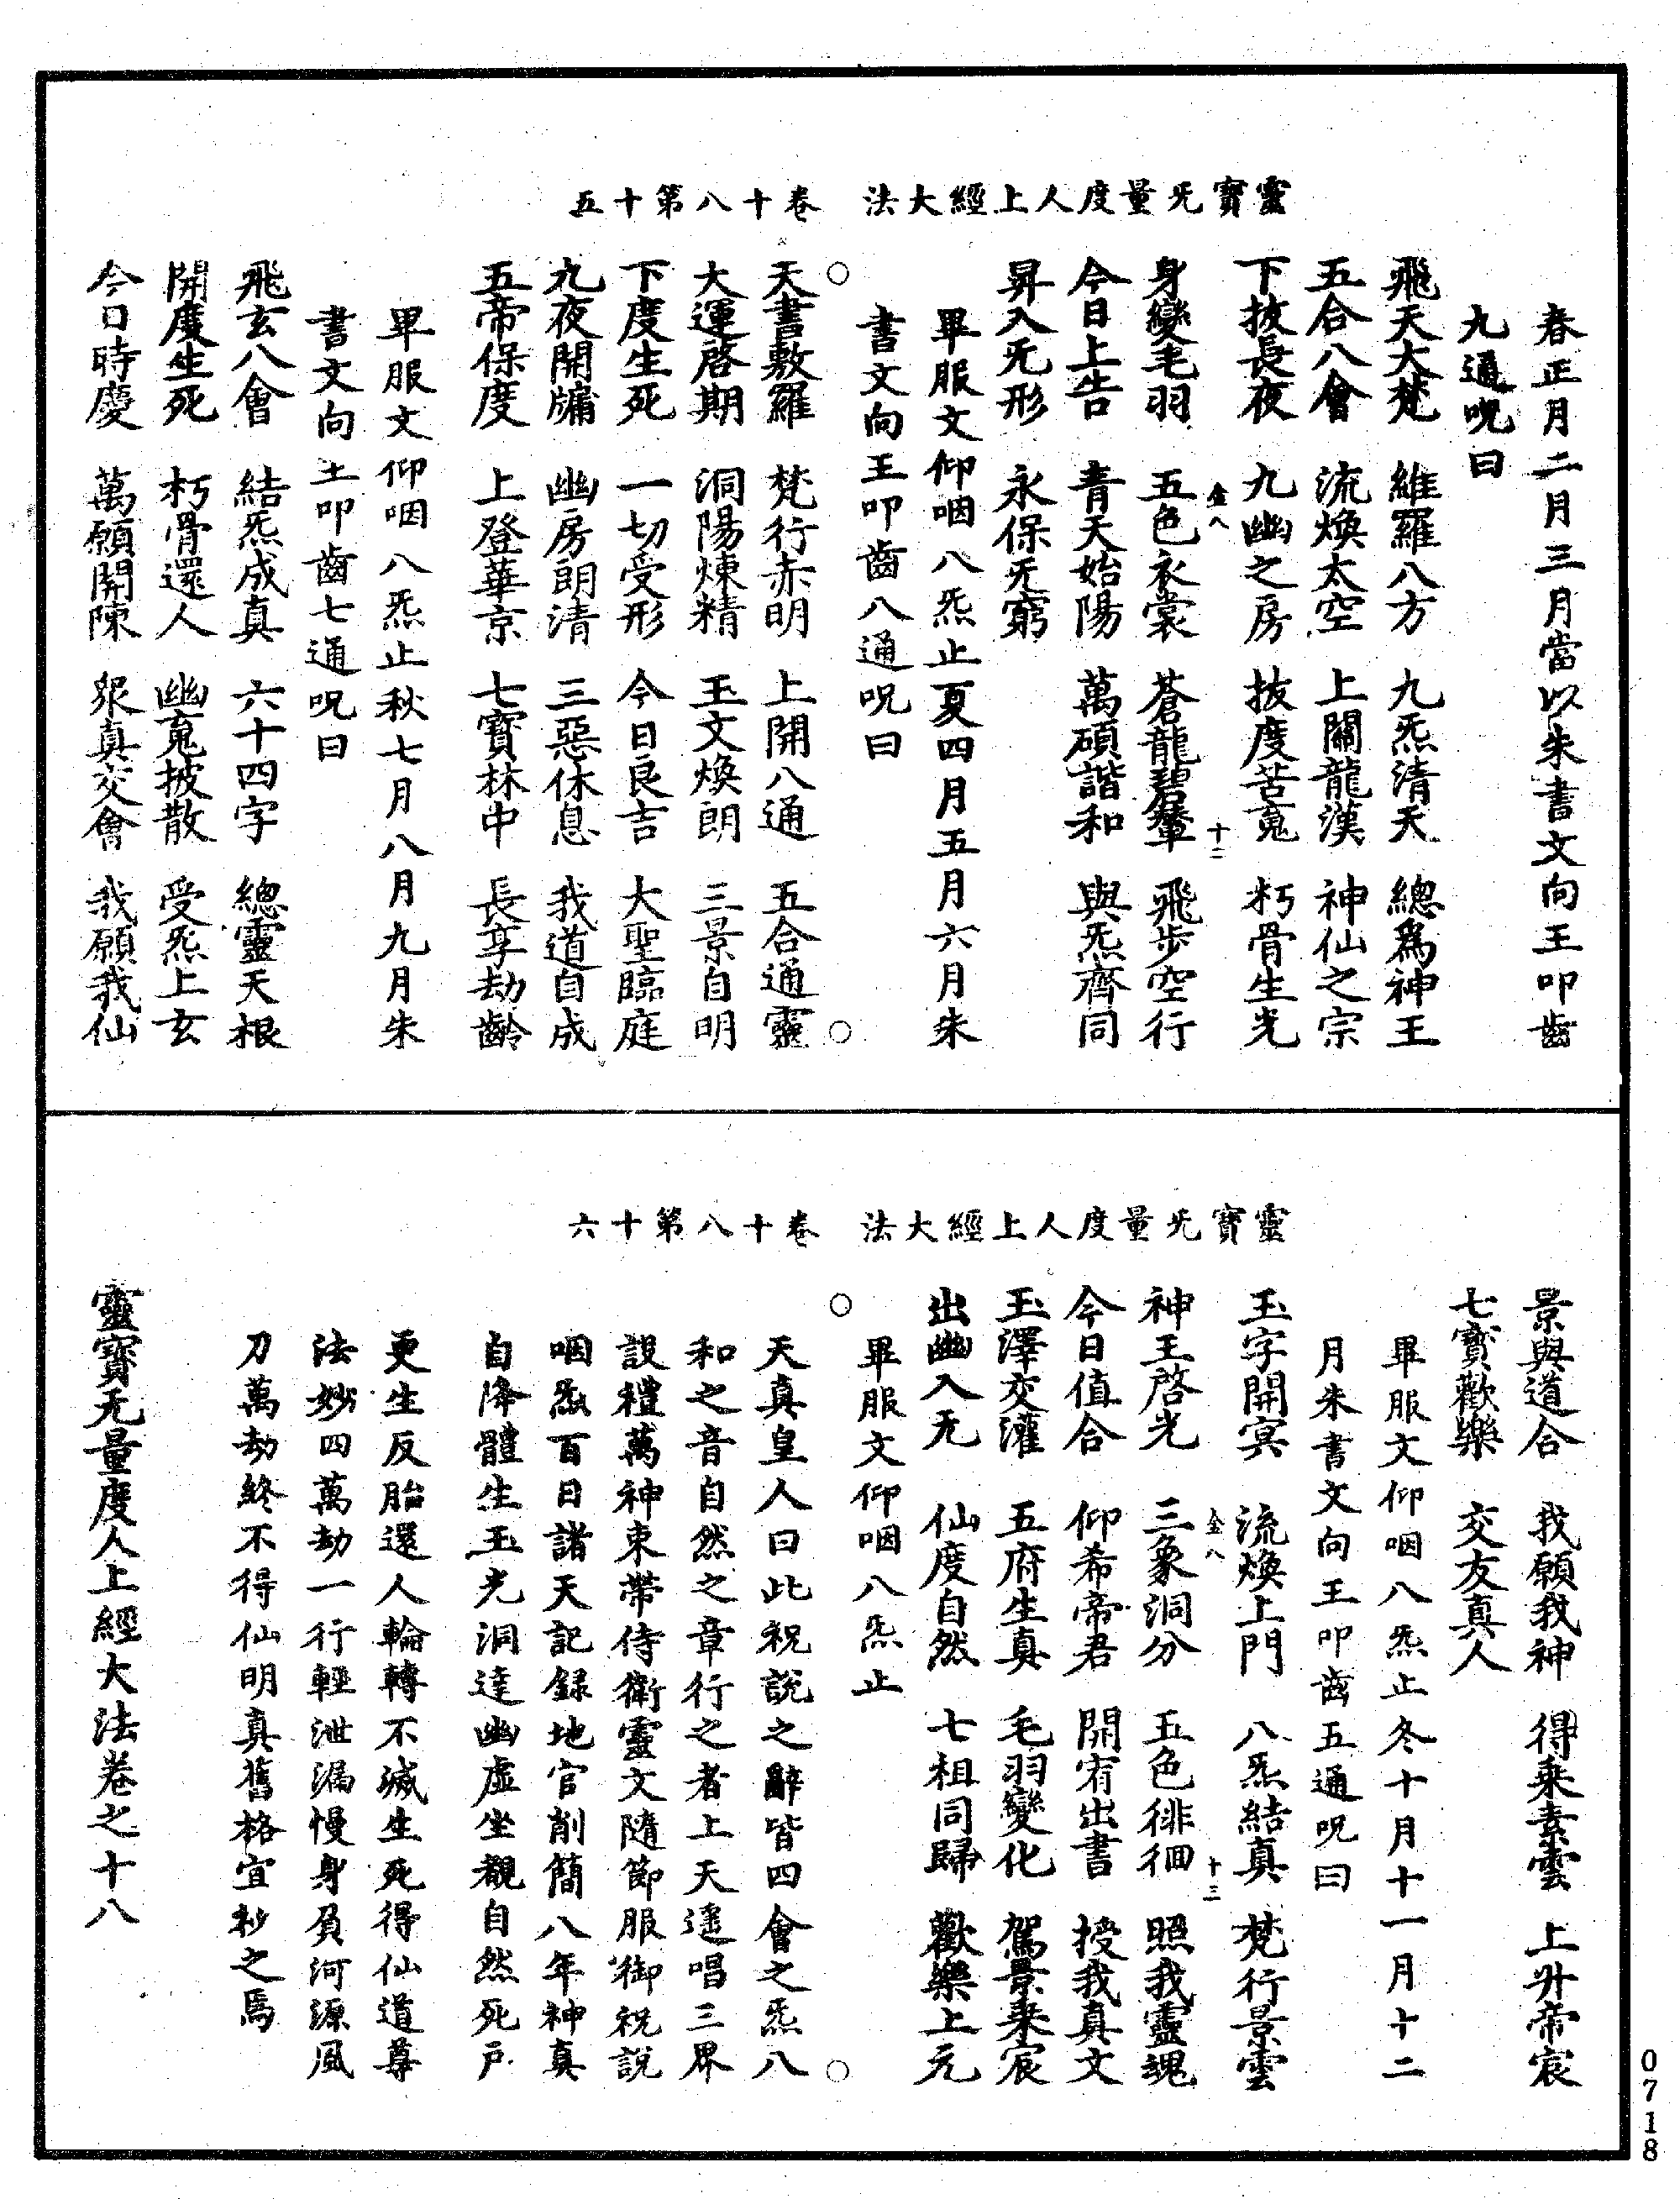 靈寶无量度人上經大法　卷十八第十五
春正月二月三月當以朱書文向王叩齒
九通呪曰
飛天大梵　維羅八方　九炁清天　總爲神王
五合八會　流煥太空　上關龍漢　神仙之宗
下披長夜　九幽之房　拔度苦䰟　朽骨生光
金八　十二
身變毛羽　五色衣裳　蒼龍碧轝　飛步空行
今日上告　青天始陽　萬碩諧和　與炁齊同
昇入无形　永保无窮
畢服文仰咽八炁止夏四月五月六月朱
書文向王叩齒八通呪曰
天書敷羅　梵行赤明　上開八通　五合通靈
大運啓期　洞陽煉精　玉文煥朗　三景自明
下度生死　一切受形　今日良吉　大聖臨庭
九夜開牗　幽房朗清　三惡休息　我道自成
五帝保度　上登華京　七寶林中　長享劫齡
畢服文仰咽八炁止秋七月八月九月朱
書文向王叩齒七通呪曰
飛玄八會　結炁成真　六十四字　總靈天根
開度生死　朽骨還人　幽䰟披散　受炁上玄
今日時慶　萬願開陳　衆真交會　我願我仙
靈寶无量度人上經大法　卷十八第十六
景與道合　我願我神　得乘素雲　上升帝宸
七寶歡樂　交友真人
畢服文仰咽八炁止冬十月十一月十二
月朱書文向王叩齒五通呪曰
玉字開冥　流煥上門　八炁結真　梵行景雲
金八　十三
神王啓光　三象洞分　五色徘徊　照我靈魂
今日值合　仰希帝君　開宥出書　授我真文
玉澤交灌　五府生真　毛羽變化　駕景乘宸
出幽入无　仙度自然　七祖同歸　歡樂上元
畢服文仰咽八炁止
天真皇人曰此祝說之辭皆四會之炁八
和之音自然之章行之者上天遥唱三界
設禮萬神束帶侍衛靈文隨節服御祝說
咽炁百日諸天記録地官削簡八年神真
自降體生玉光洞達幽虛坐觀自然死戶
更生反胎還人輪轉不滅生死得仙道尊
法妙四萬劫一行輕泄漏慢身負河源風
刀萬劫終不得仙明真舊格宜祕之焉
靈寶无量度人上經大法卷之十八
0718